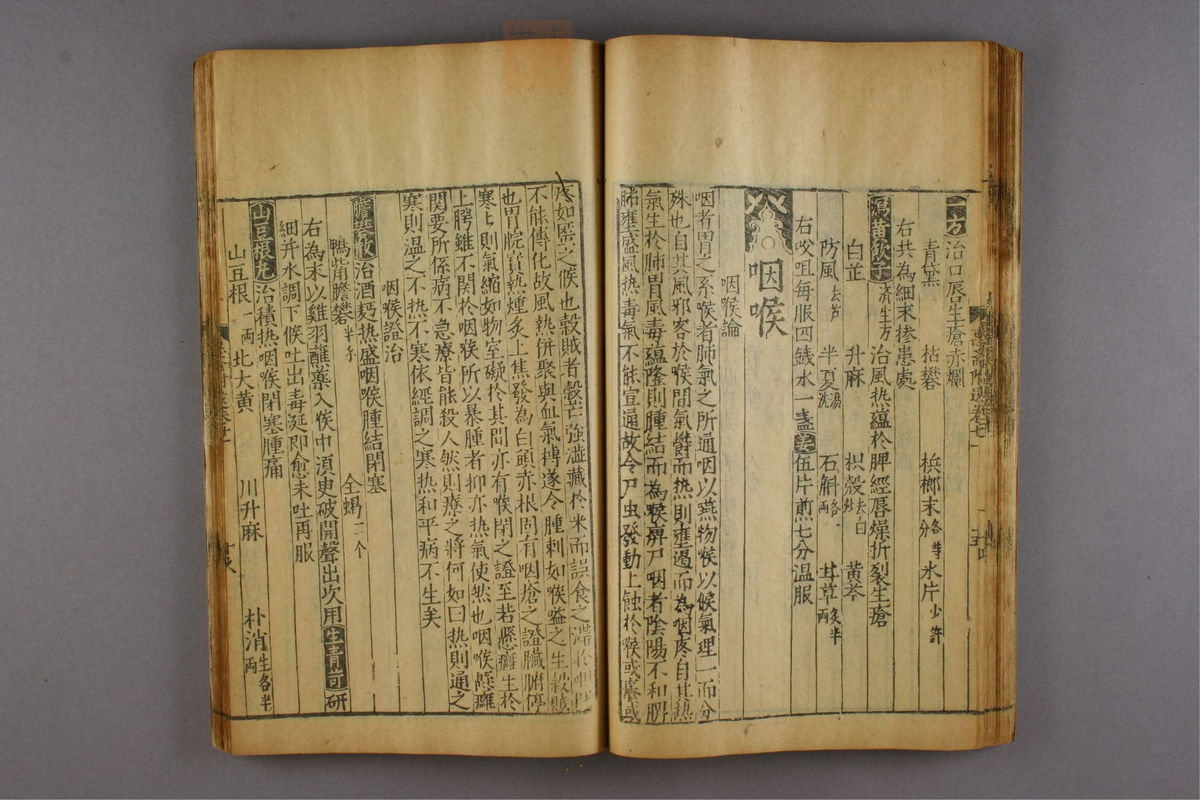 一方 治口唇生瘡赤爛
青黛 枯礬 檳榔末各等分 氷片少許
瀉黄飲子 濟生方 治風热蘊於脾經唇燥折裂生瘡
白芷 升麻 枳殻去白炒 黄芩
防風去芦 半夏湯洗 石斛各一両 甘草炙半両
右㕮咀每服四錢水一盞姜伍片煎七分温服
咽喉
咽喉論
咽者胃之系喉者肺氣之所通咽以嚥物喉以候氣理一而分
殊也自其風邪客於喉間氣欝而热則壅遏而為咽疼自其热
氣生於肺胃風毒蘊隆則腫結而為喉痹尸咽者陰陽不和脾
肺壅盛風热毒氣不能宣通故令尸虫發動上蝕於喉或癢或
疼如䘌之候也穀賊者穀芒強澁藏於米而誤食之滯於咽中
不能傳化故風熱併聚與血氣搏遂令腫刺如喉嗌之生穀賊
也胃脘實熱燻炙上焦發為白頭赤根固有咽瘡之證臓腑停
寒寒則氣縮如物窒礙於其間亦有喉閉之證至若懸癰生於
上腭雖不関於咽喉所以暴腫者抑亦热氣使然也咽喉懸癰
関要所係病不急療皆能殺人然則療之將何如曰热則通之
寒則温之不热不寒依經調之寒热和平病不生矣
咽喉證治
膽礬散 治酒麪热盛咽喉腫結閉塞
鴨觜膽礬半 全蝎二个
右為末以雞羽蘸藥入喉中湏臾破開聲出次用生青 研
細井水調下候吐出毒涎即愈未吐再服
山豆根丸 治積热咽喉閉塞腫痛
山豆根一両 北大黄 川升麻 朴消生各半両